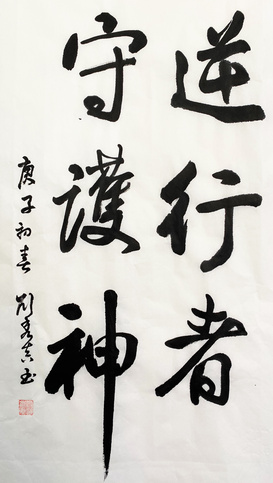 逆行者
守護神
庚子初春